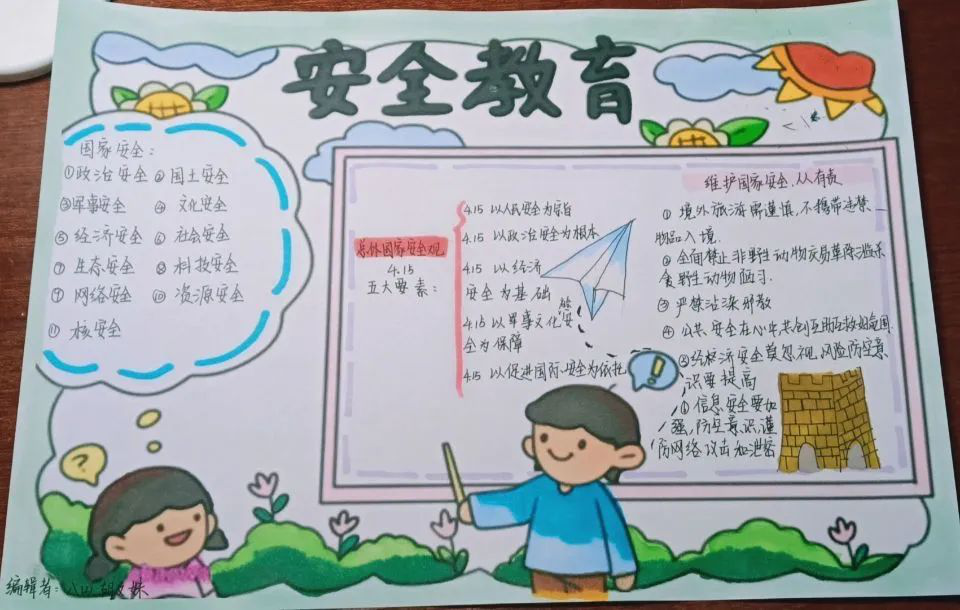 安全教育
国家安全：
①政治安全 ② 国土安全
③军事安全 ④ 文化安全
⑤ 经济安全 ⑥ 社会安全
⑦ 生态安全 ⑧ 科技安全
⑨ 网络安全 ⑩ 资源安全
⑪ 核安全
总体国家安全观
4.15
五大要素：
4.15 以人民安全为宗旨
4.15 以政治安全为根本
4.15 以经济
安全为基础
4.15 以军事文化安
全为保障
4.15 以促进国际安全为依托
维护国家安全，从有责
① 境外旅游需谨慎，不携带违禁
物品入境.
② 全面禁止非野生动物交易革除滥杀
食野生动物陋习.
③ 严禁沾染邪教
④ 公共安全在心中共创互助互救好氛围.
⑤经济安全莫忽视风险防范意
识要提高
⑥ 信息安全要加
强，防范意识，谨
防网络攻击和泄密
?
!
编辑者：